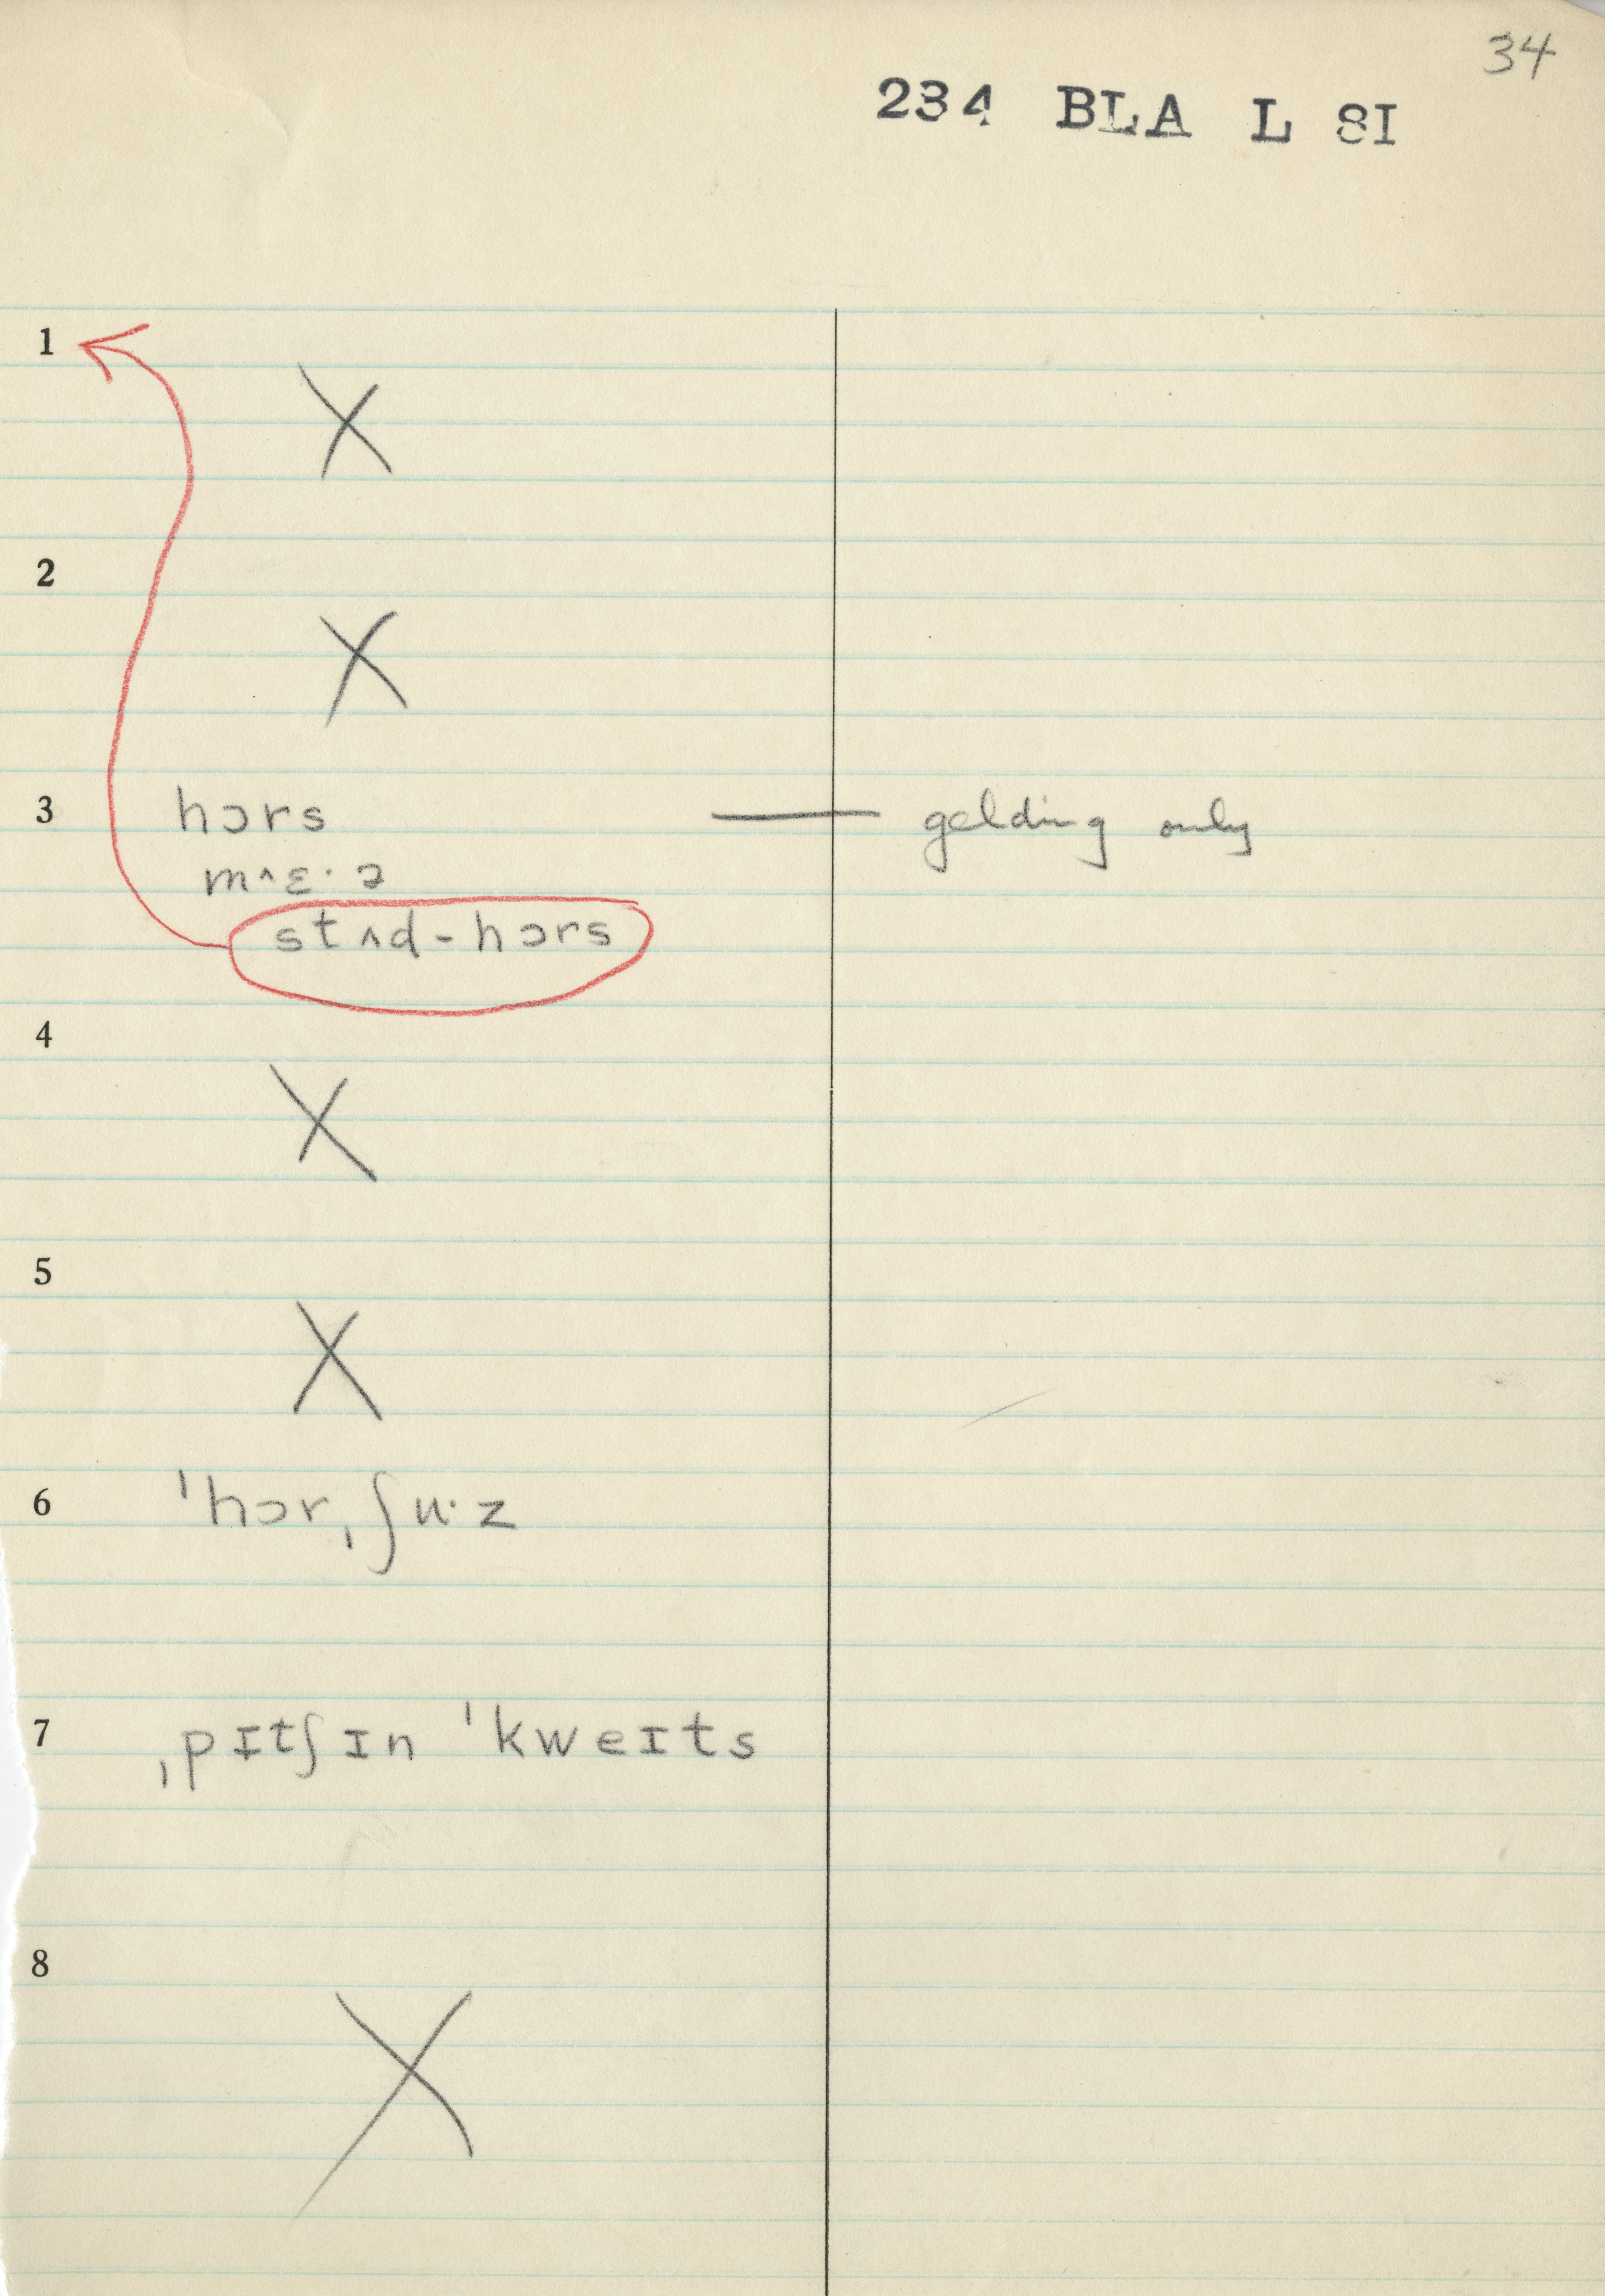 34
234 BLA L 8I
1
X
2
X
3 hɔrs — gelding only
m^ɛ·ə
stʌd-hɔrs
4
X
5
X
6 ˈhɔrˌʃu·z
7 ˌpɪtʃɪn ˈkweɪts
8
X